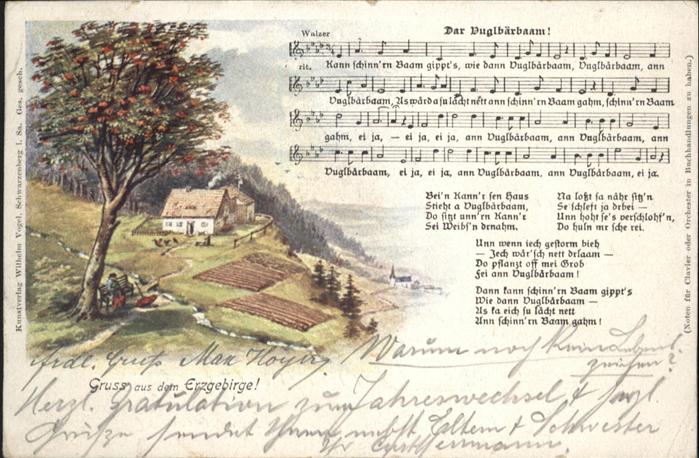 Dar Vuglbärbaam!
Walzer
rit.
Kann schinn'rn Baam gippt's, wie dann Vuglbärbaam, Vuglbärbaam, ann
Vuglbärbaam, As wärd a su lächt nett ann schinn'rn Baam gahm, schinn'rn Baam
gahm, ei ja, — ei ja, ei ja, ann Vuglbärbaam, ann Vuglbärbaam, ann
Vuglbärbaam, ei ja, ei ja, ann Vuglbärbaam, ann Vuglbärbaam, ei ja.
Bei'n Kann'r sen Haus
Stieht a Vuglbärbaam,
Do sitzt unn'rn Kann'r
Sei Weibs'n drnahm.
Na loßt sa nähr sitz'n
Se schleft ja drbei —
Unn hoht se's verschlohf'n,
Do huln mr sche rei.
Unn wenn iech gestorm bieh
— Jech wär'sch nett drlaam —
Do pflanzt off mei Grob
Fei ann Vuglbärbaam!
Dann kann schinn'rn Baam gippt's
Wie dann Vuglbärbaam —
As ka eich su lächt nett
Ann schinn'rn Baam gahm!
Kunstverlag Wilhelm Vogel, Schwarzenberg i. Sa. Ges. gesch.
(Noten für Clavier oder Orchester in Buchhandlungen zu haben.)
Gruss aus dem Erzgebirge!
Gruß Max Warum noch kein
zeichen?
Herzl. Gratulation zum Jahreswechsel &
Grüße sendet Ihnen nebst Eltern & Schwester
Ihr